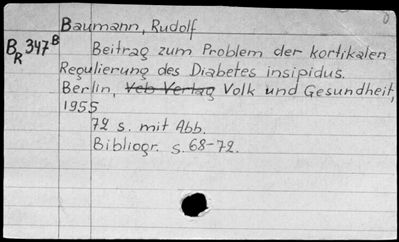 Baumann, Rudolf
BR 347B Beitrag zum Problem der kortikalen
Regulierung des Diabetes insipidus.
Berlin, Veb Verlag Volk und Gesundheit,
1955
72 s. mit Abb.
Bibliogr. s. 68-72.